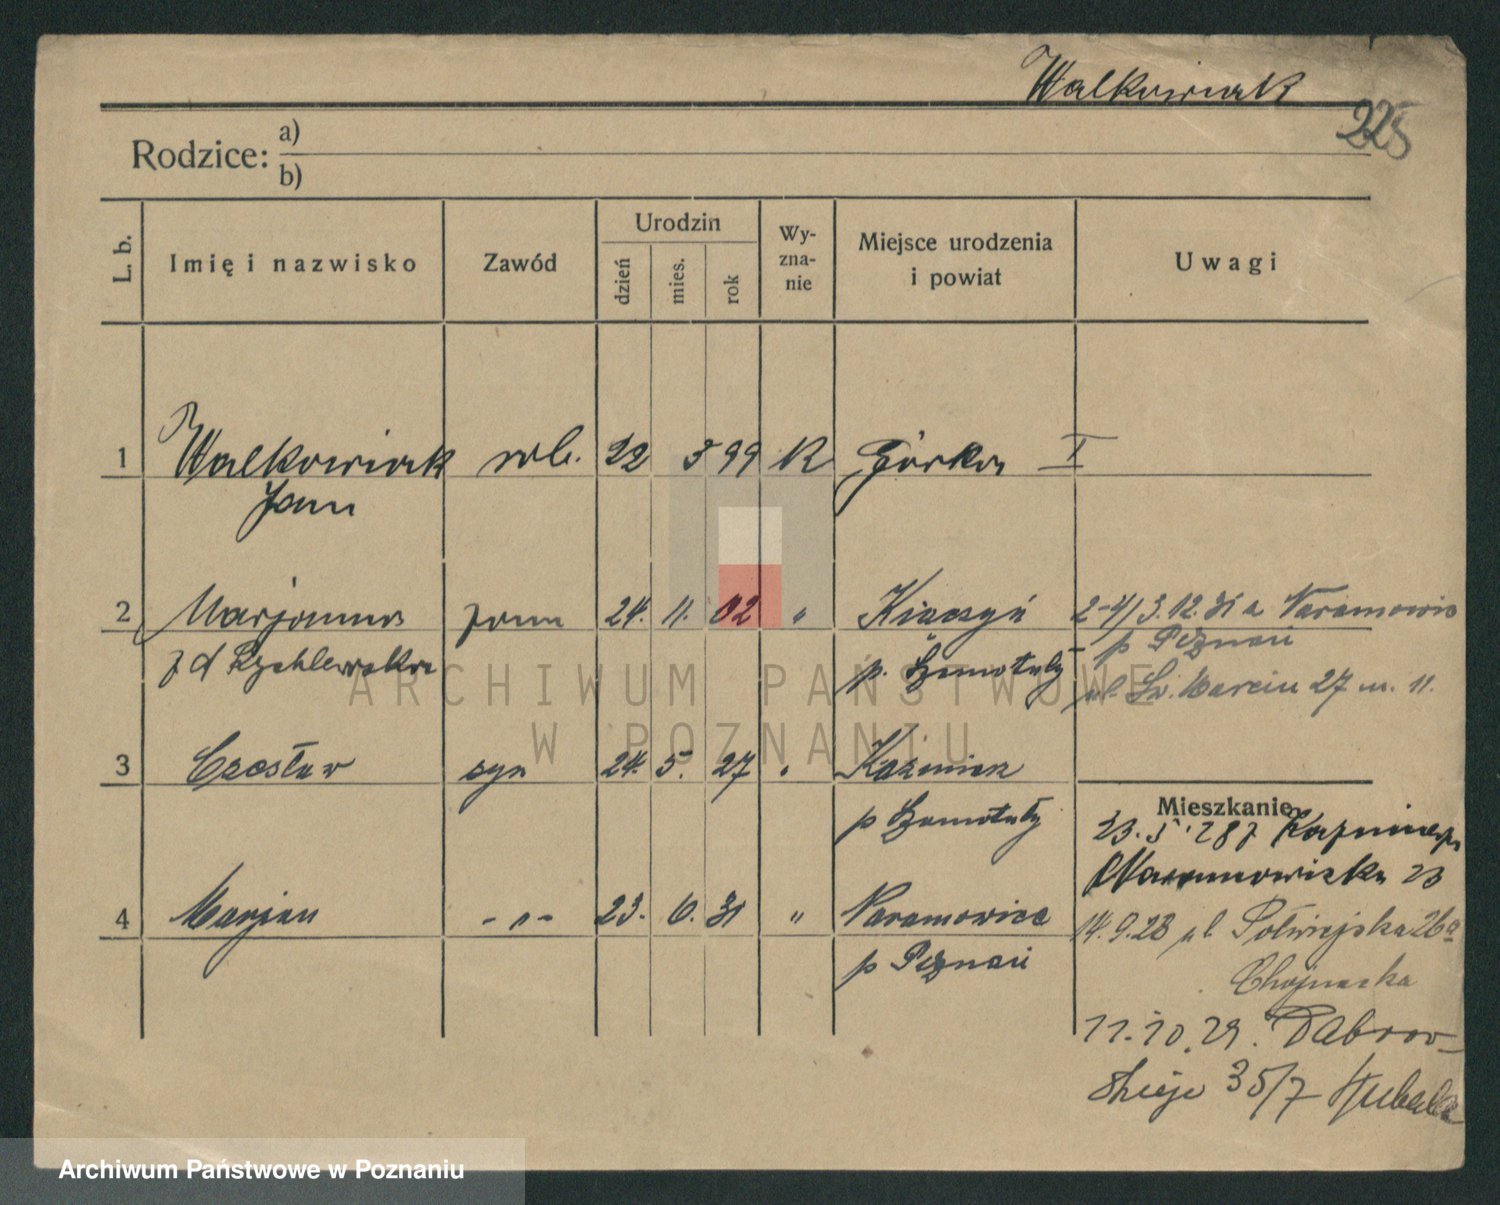 Walkowiak
225
Rodzice: a)
b)
L. b. Imię i nazwisko Zawód Urodzin dzień mies. rok Wy-zna-nie Miejsce urodzenia i powiat Uwagi
1 Walkowiak rob. 22 3 99 K Górka I
Jan
2 Marjanna żona 24. 11. 02 " Kiączyń 2-4/3.12.31 z Naramowic
z d Rychlewska p. Szamotuły p Poznań
ul. Św. Marcin 27 m. 11.
3 Czesław syn 24. 5. 27 " Kaźmierz
Mieszkanie
p Szamotuły 23. 287 Kaźmierz
Naramowicka 23
4 Marjan -"- 23. 6. 31 " Naramowice 14.9.28 ul. Półwiejska 26a
p Poznań Chojnacka
11.10.29. Dąbrow-
skiego 35/7
ARCHIWUM PAŃSTWOWE
W POZNANIU
Archiwum Państwowe w Poznaniu